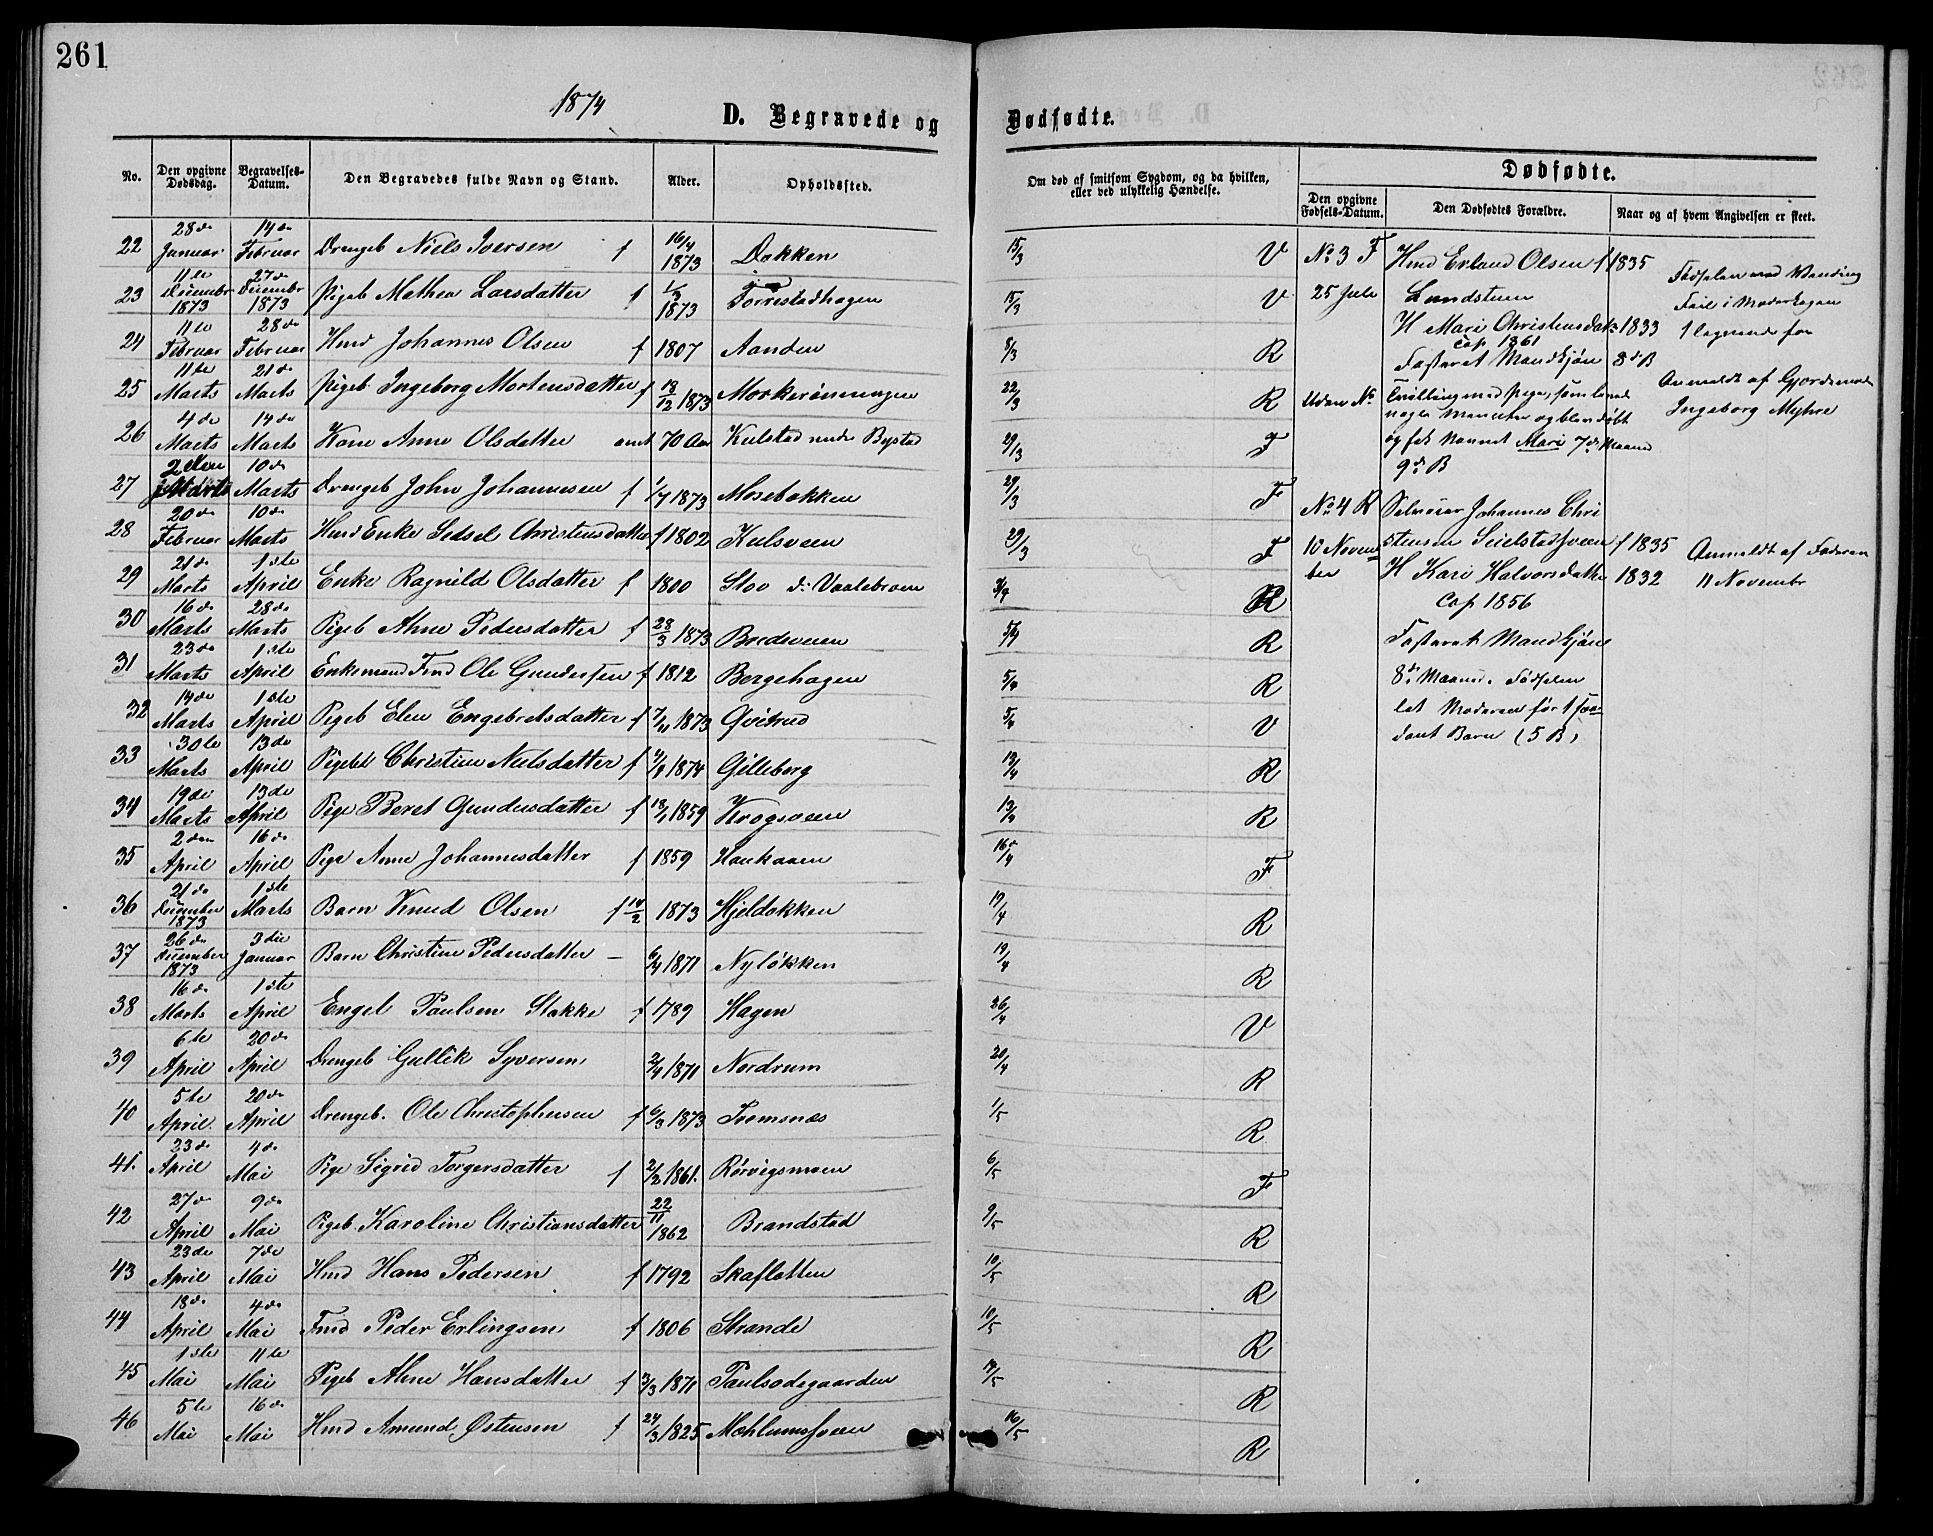 261
1874
D. Begravede og Dødfødte.
No. Den opgivne Dødsdag. Begravelses-Datum. Den Begravedes fulde Navn og Stand. Alder. Opholdssted. Om død af smitsom Sygdom, og da hvilken, eller ved ulykkelig Hændelse.
Dødfødte.
Den opgivne Fødsels-Datum. Den Dødfødtes Forældre. Naar og af hvem Angivelsen er skeet.
22 28de Januar 14de Februar Drengeb Niels Iversen f 16/4 1873 Dokken 15/3 V
23 11te Decembr 1873 27de Decembr 1873 Pigeb Mathea Larsdatter f 1/3 1873 Torrestadhagen 15/3 V
24 11te Februar 28de Februar Hmd Johannes Olsen f 1807 Aanden 8/3 R
25 11te Marts 21de Marts Pigeb Ingeborg Mortensdatter f 13/12 1873 Morkerønningen 22/3 R
26 4de Marts 14de Marts Kone Anne Olsdatter omt 70 Aar Kulstad Bystad 29/3 F
27 2den Marts 10de Marts Drengeb John Johannesen f 1/7 1873 Mosebakken 29/3 F
28 20de Februar 10de Marts Hmd Enke Sidsel Christensdatter f 1802 Kulsveen 29/3 F
29 21de Marts 1ste April Enke Ragnild Olsdatter f 1800 Stov d: Vaalebroen R
30 16de Marts 28de Marts Pigeb Anne Pedersdatter f 28/3 1873 Bredeveien R
31 23de Marts 1ste April Enkemand Fmd Ole Gundersen f 1812 Bergehagen 5/4 R
32 14de Marts 1ste April Pigeb Elen Engebretsdatter f 7/11 1873 Qvitrud 5/4 V
33 30te Marts 13de April Pigeb Christine Nielsdatter f 1874 Gilleberg 13/4 R
34 19de Marts 13de April Pige Beret Gundersdatter f 18/1 1859 Krogsveen 13/4 R
35 2den April 16de April Pige Anne Johannesdatter f 1859 Haukaaen 16/4 F
36 21de December 1873 1ste Marts Barn Knud Olsen f 14/2 1873 Hjeldokken 19/4 R
37 26de December 1873 3die Januar Barn Christine Pedersdatter – 6/4 1871 Nyløkken 19/4 R
38 16de Marts 1ste April Engel Paulsen Stakke f 1789 Hagen 26/4 V
39 6te April 20de April Drengeb Gullik Syversen 2/4 1871 Nordrum 20/4 R
40 5te April 20de April Drengeb. Ole Christophersen f 6/3 1873 Tromsnæs 1/5 R
41. 23de April 4de Mai Pige Sigrid Torgersdatter f 2/2 1861. Rørvigsmoen 6/5 F
42 27de April 9de Mai Pigeb. Karoline Christiansdatter 22/11 1862 Brandstad 9/5 R
43 23de April 7de Mai Hmd Hans Pedersen f 1792 Skafletten 10/5 R
44 18de April 4de Mai Fmd Peder Erlingsen f 1806 Strande 10/5 R
45 1ste Mai 11te Mai Pigeb Anne Hansdatter f 3/3 1871 Paulsødegaarden 14/5 R
46 5te Mai 16de Mai Hmd Amund Østensen f 24/3 1825 Mæhlumsveen 16/5 R
No 3 F Hmd Erland Olsen f 1835
25 Jule Lundsteen
H Mari Christensdatr 1833
cop 1861
Fostaret Mandkjøn 8de B
Uden No Tvilling med Pige, som levede
nogle Minuter og blev døbt
og fik Navnet Mari 7de Maaned
9de B
Fødselen med Vending
Feil i Moderkagen
1 lignende før
Anmeldt af Gjordemod
Ingeborg Myhre
No 4 R Selveier Johannes Chri
10 Novem stensen Seielstadsveen f 1835
ber H Kari Halvorsdatter 1832
Cop 1856
Fosteret Mandkjøn
8de Maaned. Fødselen
let Moderen før 1 saa
dant Barn (5 B)
Anmeldt af Faderen
11 Novembr